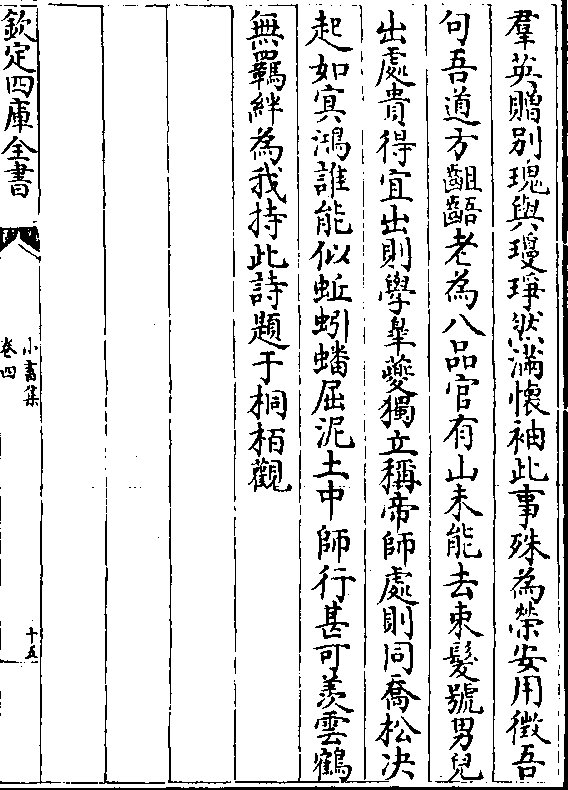 羣英贈別瑰與瓊琤然滿懷袖此事殊為榮安用徵吾
句吾道方齟齬老為八品官有山未能去束髮號男兒
出處貴得宜出則學臯夔獨立稱帝師處則同喬松决
起如冥鴻誰能似蚯蚓蟠屈泥土中師行甚可羨雲鶴
無羈絆為我持此詩題于桐栢觀
欽定四庫全書
小畜集
卷四
十五